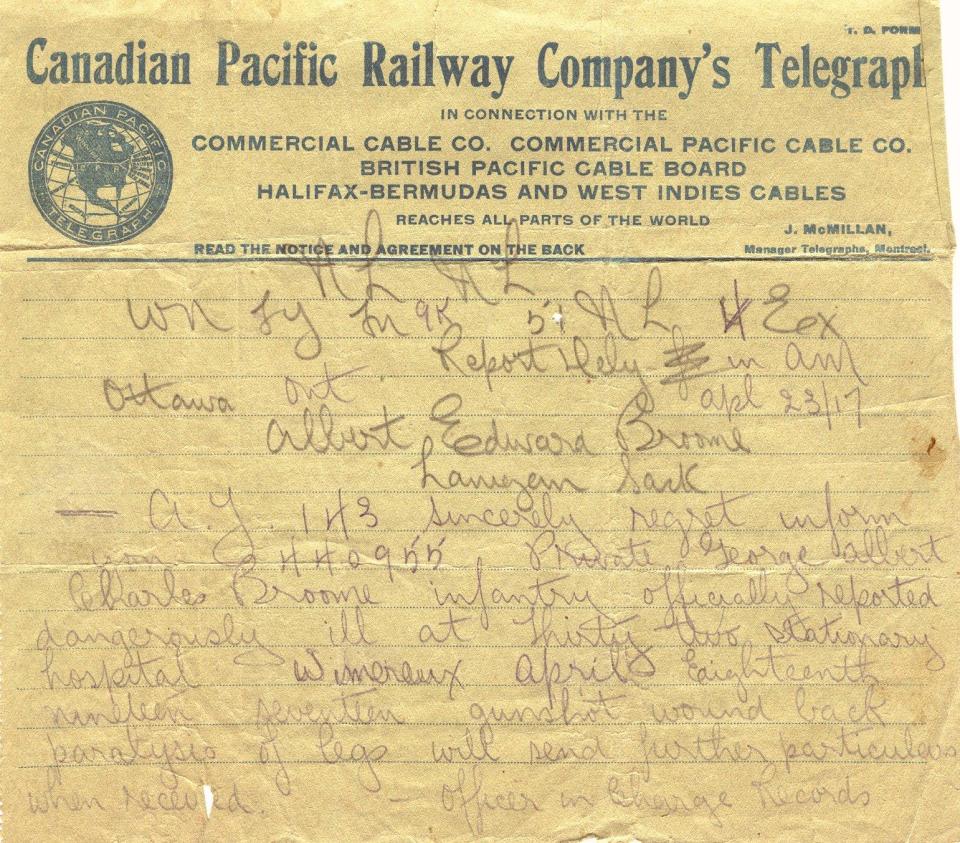 T. D. FORM
Canadian Pacific Railway Company's Telegraph
CANADIAN PACIFIC
TELEGRAPH
IN CONNECTION WITH THE
COMMERCIAL CABLE CO. COMMERCIAL PACIFIC CABLE CO.
BRITISH PACIFIC CABLE BOARD
HALIFAX-BERMUDAS AND WEST INDIES CABLES
REACHES ALL PARTS OF THE WORLD
J. McMILLAN,
READ THE NOTICE AND AGREEMENT ON THE BACK
Manager Telegraphs, Montreal.
NL NL
Wn Sy 51 NL Ex
Report Dely in am
Ottawa Ont apl 23/17
Albert Edward Broome
Lanigan Sask
— A.G. 143 sincerely regret inform
you 440955 Private George Albert
Charles Broome infantry officially reported
dangerously ill at Thirty two stationary
hospital Wimereux April Eighteenth
nineteen seventeen gunshot wound back
paralysis of legs will send further particulars
when received. — Officer in Charge Records